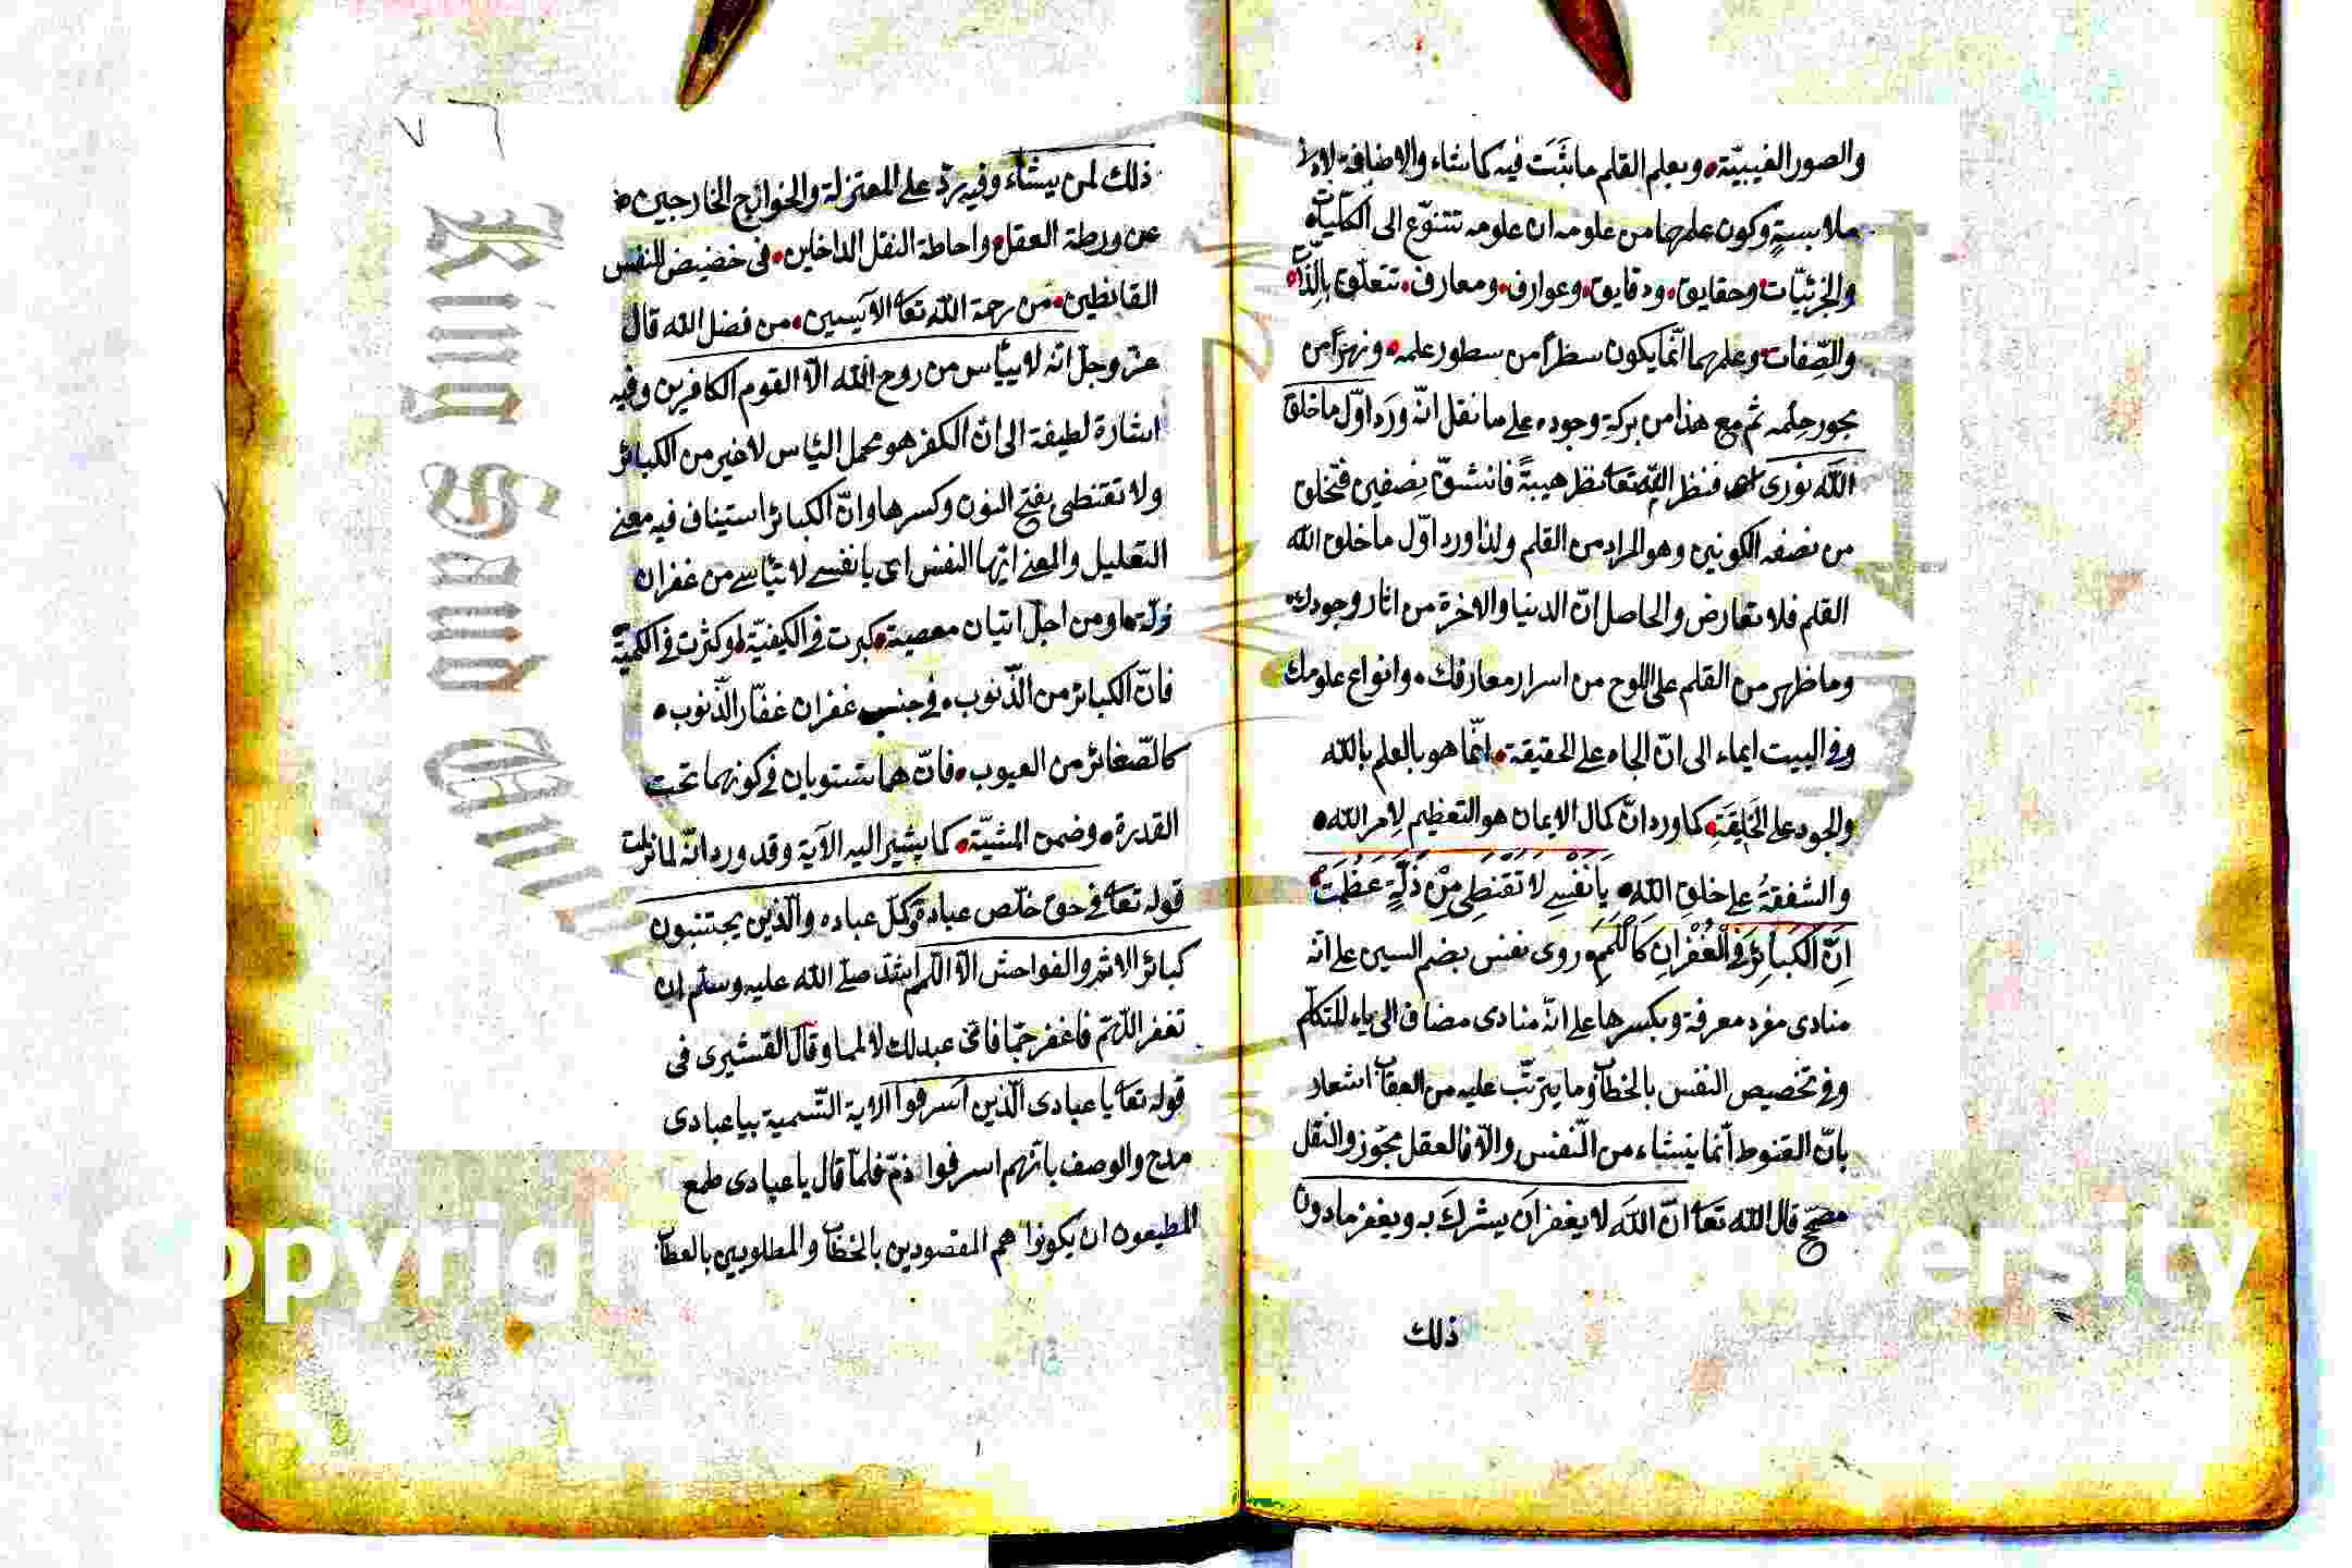 والصور الغيبيّة وبعلم القلم ما يثبت فيه كما شاء والاضافة لادنى
ملابسة وكون علمهما من علومه ان علومه تتنوّع الى الكليّات
والجزئيّات وحقايق ودقايق وعوارف ومعارف تتعلّق بالذّات
والصّفات وعلمهما انّما يكون سطراً من سطور علمه ونهراً من
بحور حِلمه ثم مع هذا من بركة وجوده على ما نقل انّه ورد اوّل ما خلق
اللّه نورى فنظر اللّه تعا نظر هيبةً فانشقّ نصفين فخلق
من نصفه الكونين وهو المراد من القلم ولذا ورد اوّل ما خلق اللّه
القلم فلا تعارض والحاصل انّ الدنيا والاخرة من اثار وجودك
وما ظهر من القلم على اللوح من اسرار معارفك وانواع علومك
وفي البيت ايماء الى انّ الجاه على الحقيقة انّما هو بالعلم باللّه
والجود على الخَلِيقَةِ كما ورد انّ كمال الايمان هو التعظيم لِامر اللّه
والشفقةُ على خلق اللّهِ يَا نَفْسِى لَا تَقْنَطِى مِنْ زَلَّةٍ عَظُمَتْ
اِنَّ الْكَبَائِرَ فِي الْغُفْرَانِ كَاللَّمَمِ روى نفس بضم السين على انّه
منادى مفرد معرفة وبكسرها على انّه منادى مضاف الى ياء المتكلم
وفي تخصيص النفس بالخطاب وما يترتّب عليه من العقاب اشعار
بانّ القنوط انّما ينشاء من النّفس والّا فالعقل مجوّز والنقل
مصحّح قال اللّه تعا انّ اللّهَ لا يغفر اَن يشركَ به ويغفر مادون
ذلك
٧٦
ذلك لمن يشاء وفيه ردّ على المعتزلة والخوارج الخارجين
عن ورطة العقل واحاطة النقل الداخلين في خضيض النفس
القانطين من رحمة اللّه تعا الآيسين من فضل اللّه قال
عزّ وجلّ انّه لا ييأس من روح اللّه الّا القوم الكافرين وفيه
اشارة لطيفة الى انّ الكفر هو محمل اليأس لا غير من الكبائر
ولا تقنطى بفتح النون وكسرها وانّ الكبائر استيناف فيه معنى
التعليل والمعنى ايّها النفس اى يا نفسى لا تيأسى من غفران
زلّة ومن اجل اتيان معصية كبرت في الكيفيّة وكثرت في الكميّة
فانّ الكبائر من الذّنوب في جنب غفران غفّار الذّنوب
كالصّغائر من العيوب فانّهما تستويان في كونهما تحت
القدرة وضمن المشيّة كما يشير اليه الآية وقد ورد انّه لما نزلت
قوله تعا في حق خلّص عباده وكلّ عباده والّذين يجتنبون
كبائر الاثم والفواحش الّا اللمم انشد صلّى اللّه عليه وسلّم ان
تغفر اللّهمّ فاغفر جمّا فاىّ عبد لك لا لمما وقال القشيرى في
قوله تعا يا عبادى الّذين اسرفوا الاية التّسمية بيا عبادى
مدح والوصف بانّهم اسرفوا ذمّ فلمّا قال يا عبادى طمع
المطيعون ان يكونوا هم المقصودين بالخطاب والمطلوبين بالعطا